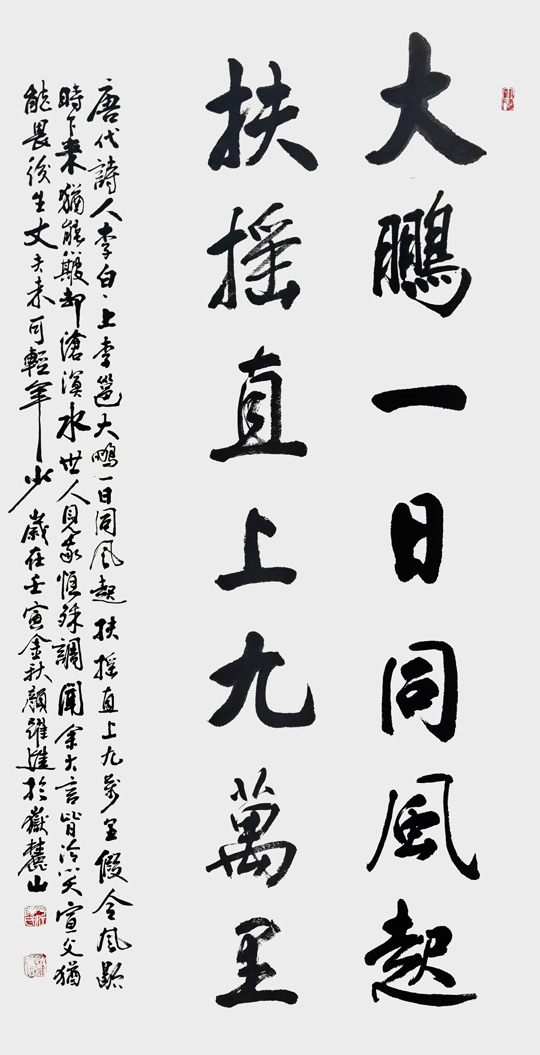 大鵬一日同風起
扶摇直上九萬里
唐代詩人李白、上李邕大鵬一日同風起扶摇直上九萬里假令風歇
時下來猶能簸却滄溟水世人見我恒殊調聞余大言皆冷笑宣父猶
能畏後生丈夫未可輕年少 歲在壬寅金秋顏躍進於嶽麓山